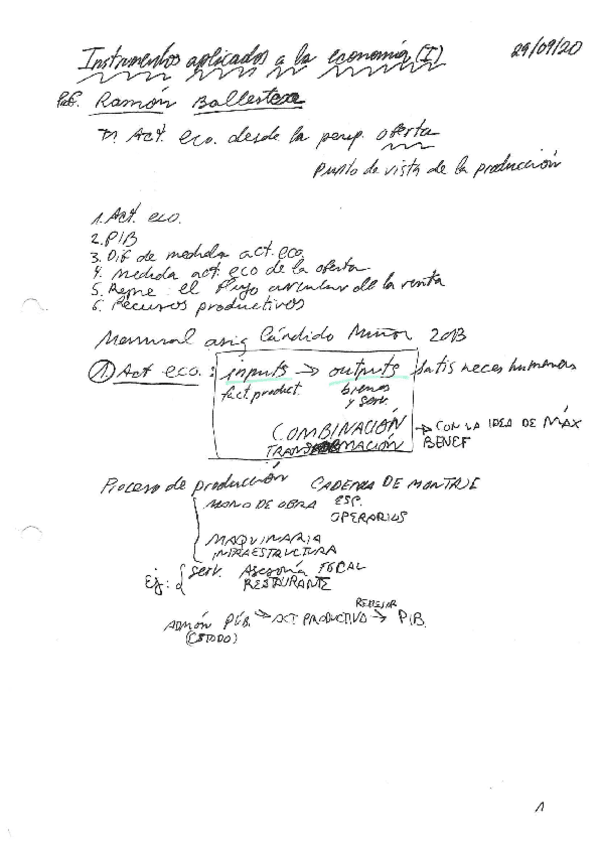 Instrumentos aplicados a la economía (I) 29/09/20
Prof. Ramón Ballester
Act. eco. desde la persp. oferta
Punto de vista de la producción
1. Act. eco.
2. PIB
3. Dif de medida act. eco
4. medida act. eco de la oferta
5. Repre : el flujo circular de la renta
6. Recursos productivos
Manual asig Cándido Muñoz 2013
① Act eco. : inputs → outputs satis neces humanas
fact product. bienes
y serv.
COMBINACIÓN → CON LA IDEA DE MÁX
TRANSFORMACIÓN BENEF
Proceso de producción CADENA DE MONTAJE
MANO DE OBRA ESP.
OPERARIOS
MAQUINARIA
INFRAESTRUCTURA
Ej: { serv. ASESORÍA FISCAL
RESTAURANTE
ADMÓN PÚB. → ACT PRODUCTIVO → PIB.
(ESTADO)
1